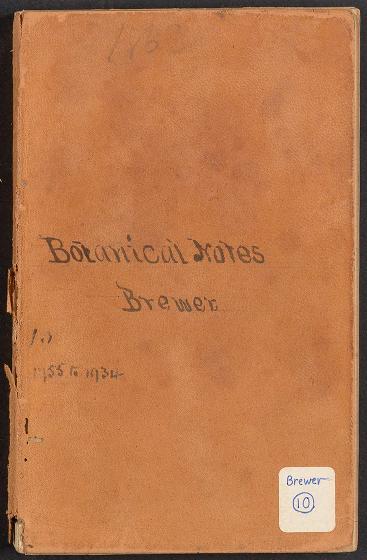 Botanical Notes
Brewer
1955 to 1934
Brewer
10